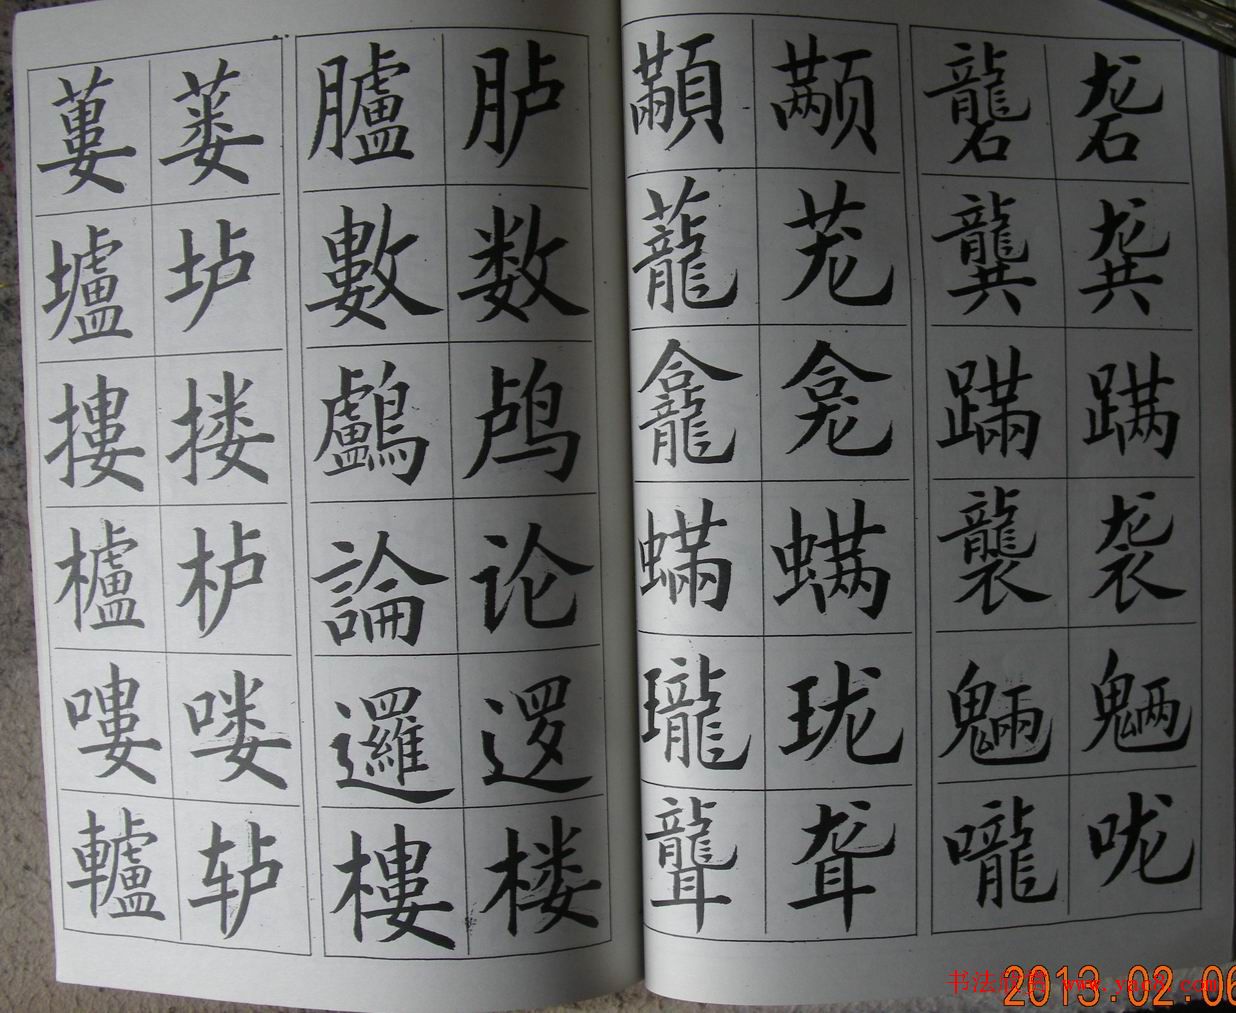 蔞 蒌 臚 胪 顢 颟 礱 砻
壚 垆 數 数 蘢 茏 龔 龚
摟 搂 鸕 鸬 龕 龛 蹣 蹒
櫨 栌 論 论 蟎 螨 襲 袭
嘍 喽 邏 逻 瓏 珑 魎 魉
轤 轳 樓 楼 聾 聋 嚨 咙
书法欣赏 www.yac8.com
2013.02.06